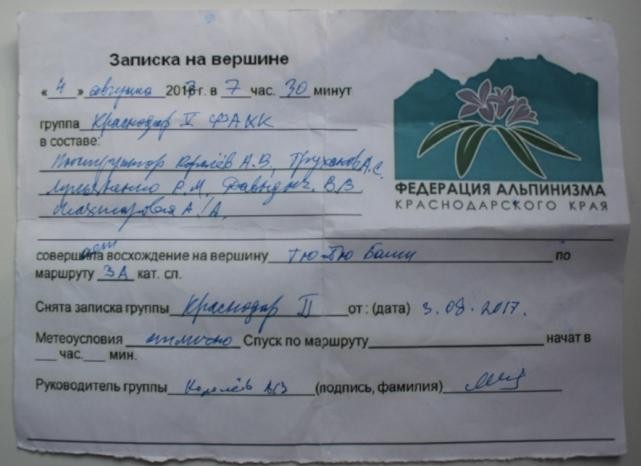 Записка на вершине
« 4 » августа 2017 г. в 7 час. 30 минут
группа Краснодар V ФАКК
в составе:
Инструктор Королёв А.В, Труханов А.С.
Р.М, Давыдыч. В.В
А.А.
совершает восхождение на вершину Тю-Тю Баши по
маршруту 3А кат. сл.
Снята записка группы Краснодар II от : (дата) 3.08.2017.
Метеоусловия отлично Спуск по маршруту начат в
час. мин.
Руководитель группы Королёв АВ (подпись, фамилия)
ФЕДЕРАЦИЯ АЛЬПИНИЗМА
КРАСНОДАРСКОГО КРАЯ